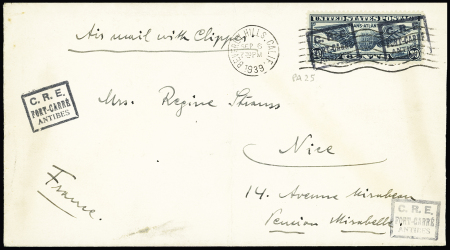 Air mail with Clipper
BEVERLY HILLS, CALIF.
SEP 6
PM
1939
UNITED STATES POSTAGE
TRANS-ATLANTIC
CENTS
PA 25
C. R. E.
PORT-CARRÉ
ANTIBES
Mrs. Regine Strauss
Nice
14. Avenue Mirabeau
Pension Mirabelle
France.
C. R. E.
PORT-CARRÉ
ANTIBES